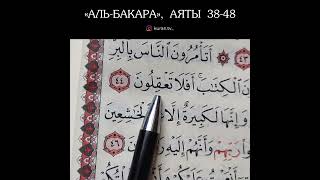 «АЛЬ-БАКАРА», АЯТЫ 38-48
kuran.tv_
٤٣ ۞ أَتَأْمُرُونَ ٱلنَّاسَ بِٱلْبِرِّ
ٱلْكِتَٰبَ ۚ أَفَلَا تَعْقِلُونَ ٤٤
وَإِنَّهَا لَكَبِيرَةٌ إِلَّا ٱلْخَٰشِعِينَ
رَبِّهِمْ وَأَنَّهُمْ إِلَيْهِ ٤٦